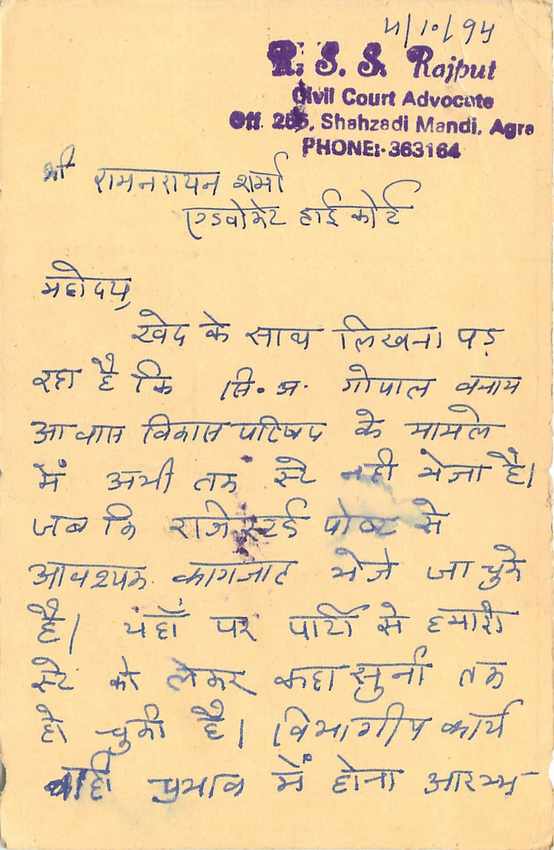 4/10/94
R. S. S. Rajput
Civil Court Advocate
Off. 256, Shahzadi Mandi, Agra
PHONE:-363164
श्री रामनरायन शर्मा
एडवोकेट हाई कोर्ट
महोदय,
खेद के साथ लिखना पड़
रहा है कि सि. अ. गोपाल बनाम
आवास विकास परिषद के मामले
में अभी तक स्टे नही भेजा है।
जब कि राजेस्टर्ड पोस्ट से
आवश्यक कागजात भेजे जा चुके
है। यहाँ पर पार्टी से हमारी
स्टे को लेकर कहा सुनी तक
हो चुकी है। विभागीय कार्य
वाही प्रभाव में होना आरम्भ